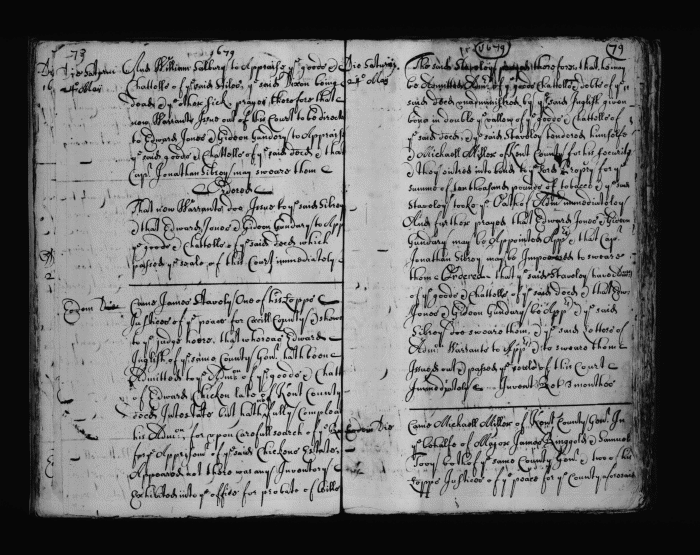 73
1679
Die Saturni
24º May
And William Salbury to Appraise yᵉ goods &
Chattells of yᵉ said Stiles yᵉ said Dixon being
dead & yᵉ other Sick prayes therefore that
new Warrants Issue out of this Court to be directed
to Edward Jones & Gideon Gundary to Appraise
yᵉ said goods & Chattells of yᵉ said decd & that
Capᵗ Jonathan Sibrey may sweare them
Ordered
That new Warrants doe Issue to yᵉ said Sibrey
& that Edward Jones & Gideon Gundary to App
yᵉ goods & Chattells of yᵉ said decd which
passed yᵉ seale of this Court immediately
Eodem Die
Came James Stavely One of his Lopps
Justices of yᵉ peace for Cecill County & shewes
to yᵉ Judge here, that whereas Edward
Inglish of yᵉ same County Genᵗ hath beene
Admitted to yᵉ Admᵒⁿ of yᵉ goods & Chatt
of Edward Chicken late of Kent County
decd Intestate but hath fully
his Admᵒⁿ for upon carefull search of yᵉ
for yᵉ Appᵐᵗ of yᵉ said Chickens Estate
Appeared not there was any Inventory
Exhibited into yᵉ office for probate of Wills
1679
79
Die Saturni
24º May
The said Staveley prayes therefore that he may
be Admitted Admʳ of yᵉ goods Chattells & debts of yᵉ
said decd unadministred by yᵉ said Inglish given
bond in double yᵉ vallew of yᵉ goods & chattells of
yᵉ said decd, & yᵉ said Staveley tendered himselfe
& Michaell Miller of Kent County for his security
& they entred into bond to yᵉ Lord Propry for yᵉ
summe of tenthousand pounds of tobacco & yᵉ said
Staveley tooke yᵉ Oath of Admʳ immediateley
And further prayes that Edward Jones & Gideon
Gundary may be Appointed Appʳˢ & that Capᵗ
Jonathan Sibrey may be Impowered to sweare
them Ordered that yᵉ said Staveley have Admᵒⁿ
of yᵉ goods & Chattells of yᵉ said decd & that Edw
Jones & Gideon Gundary be Appʳˢ & yᵉ said
Sibrey doe sweare them, & yᵉ said Letters of
Admᵒⁿ Warrants to Appʳ & to sweare them
Issued out & passed yᵉ seale of this Court
Immediately Invent Ret 3 months
Eodem Die
Came Michaell Miller of Kent County Genᵗ In
yᵉ behalfe of Major James Ringgold & Samuel
Tovy both of yᵉ same County Genᵗ & two of his
Lopps Justices of yᵉ peace for yᵉ County aforesaid